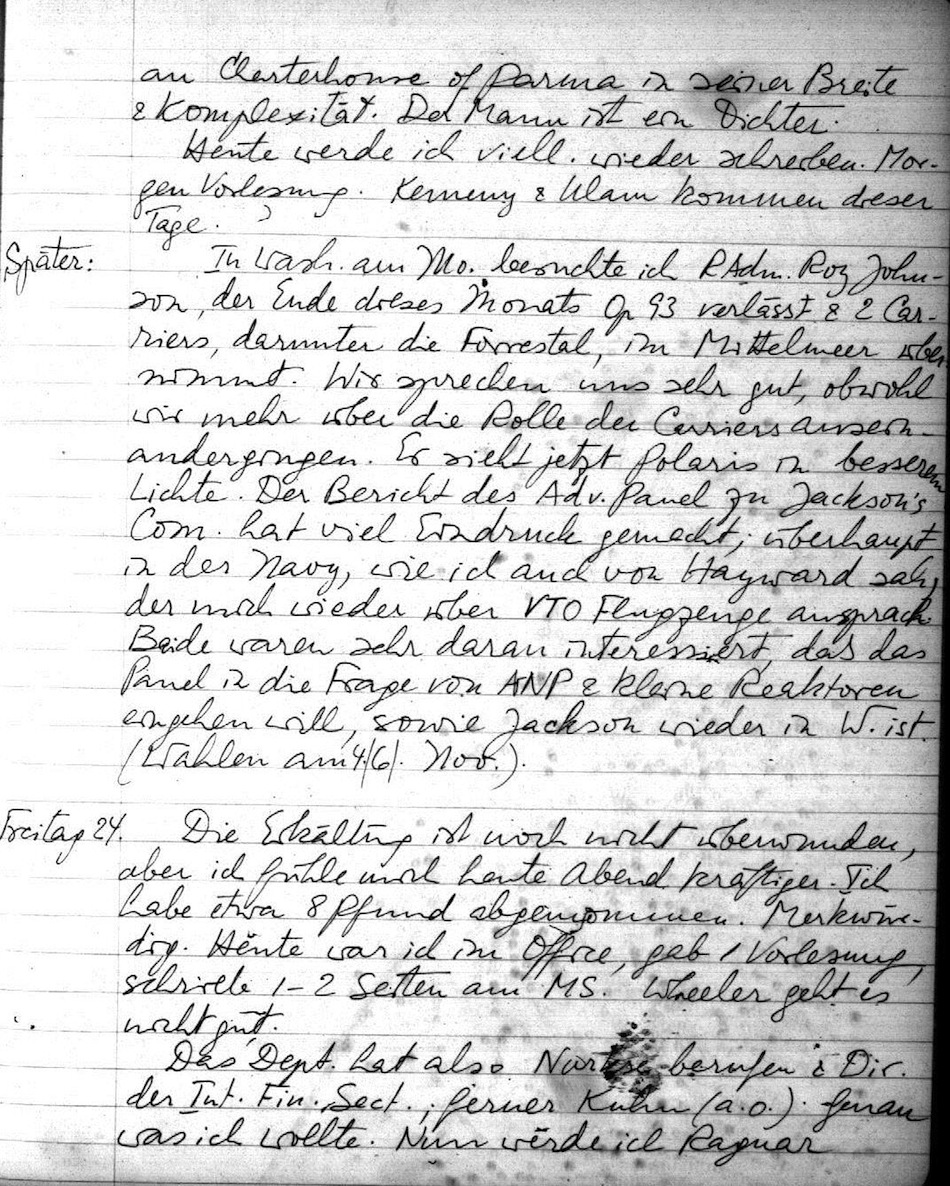 an Charterhouse of Parma in seiner Breite
& Komplexität. Der Mann ist ein Dichter.
Heute werde ich viell. wieder schreiben. Mor-
gen Vorlesung. Kemeny & Ulam kommen dieser
Tage.
Später: In Wash. am Mo. besuchte ich RAdm. Roy John-
son, der Ende dieses Monats Op 93 verlässt & 2 Car-
riers, darunter die Forrestal, im Mittelmeer über
nimmt. Wir sprechen uns sehr gut, obwohl
wir mehr über die Rolle der Carriers ausein-
andergingen. Er sieht jetzt Polaris in besserem
Lichte. Der Bericht des Adv. Panel zu Jackson's
Com. hat viel Eindruck gemacht; überhaupt
in der Navy, wie ich auch von Hayward sah,
der mich wieder über VTO Flugzeuge ansprach.
Beide waren sehr daran interessiert, das das
Panel in die Frage von ANP & kleine Reaktoren
eingehen will, sowie Jackson wieder in W. ist.
(Wahlen am 4/6/. Nov.).
Freitag 24. Die Erkältung ist noch nicht überwunden,
aber ich fühle mich heute Abend kräftiger. Ich
habe etwa 8 Pfund abgenommen. Merkwür-
dig. Heute war ich im Office, gab 1 Vorlesung,
schrieb 1-2 Seiten am MS. Wheeler geht es
nicht gut.
Das Dept. hat also berufen & Dir.
der Int. Fin. Sect.; ferner Kuhn (a.o.). Genau
was ich wollte. Nun werde ich Ragnar